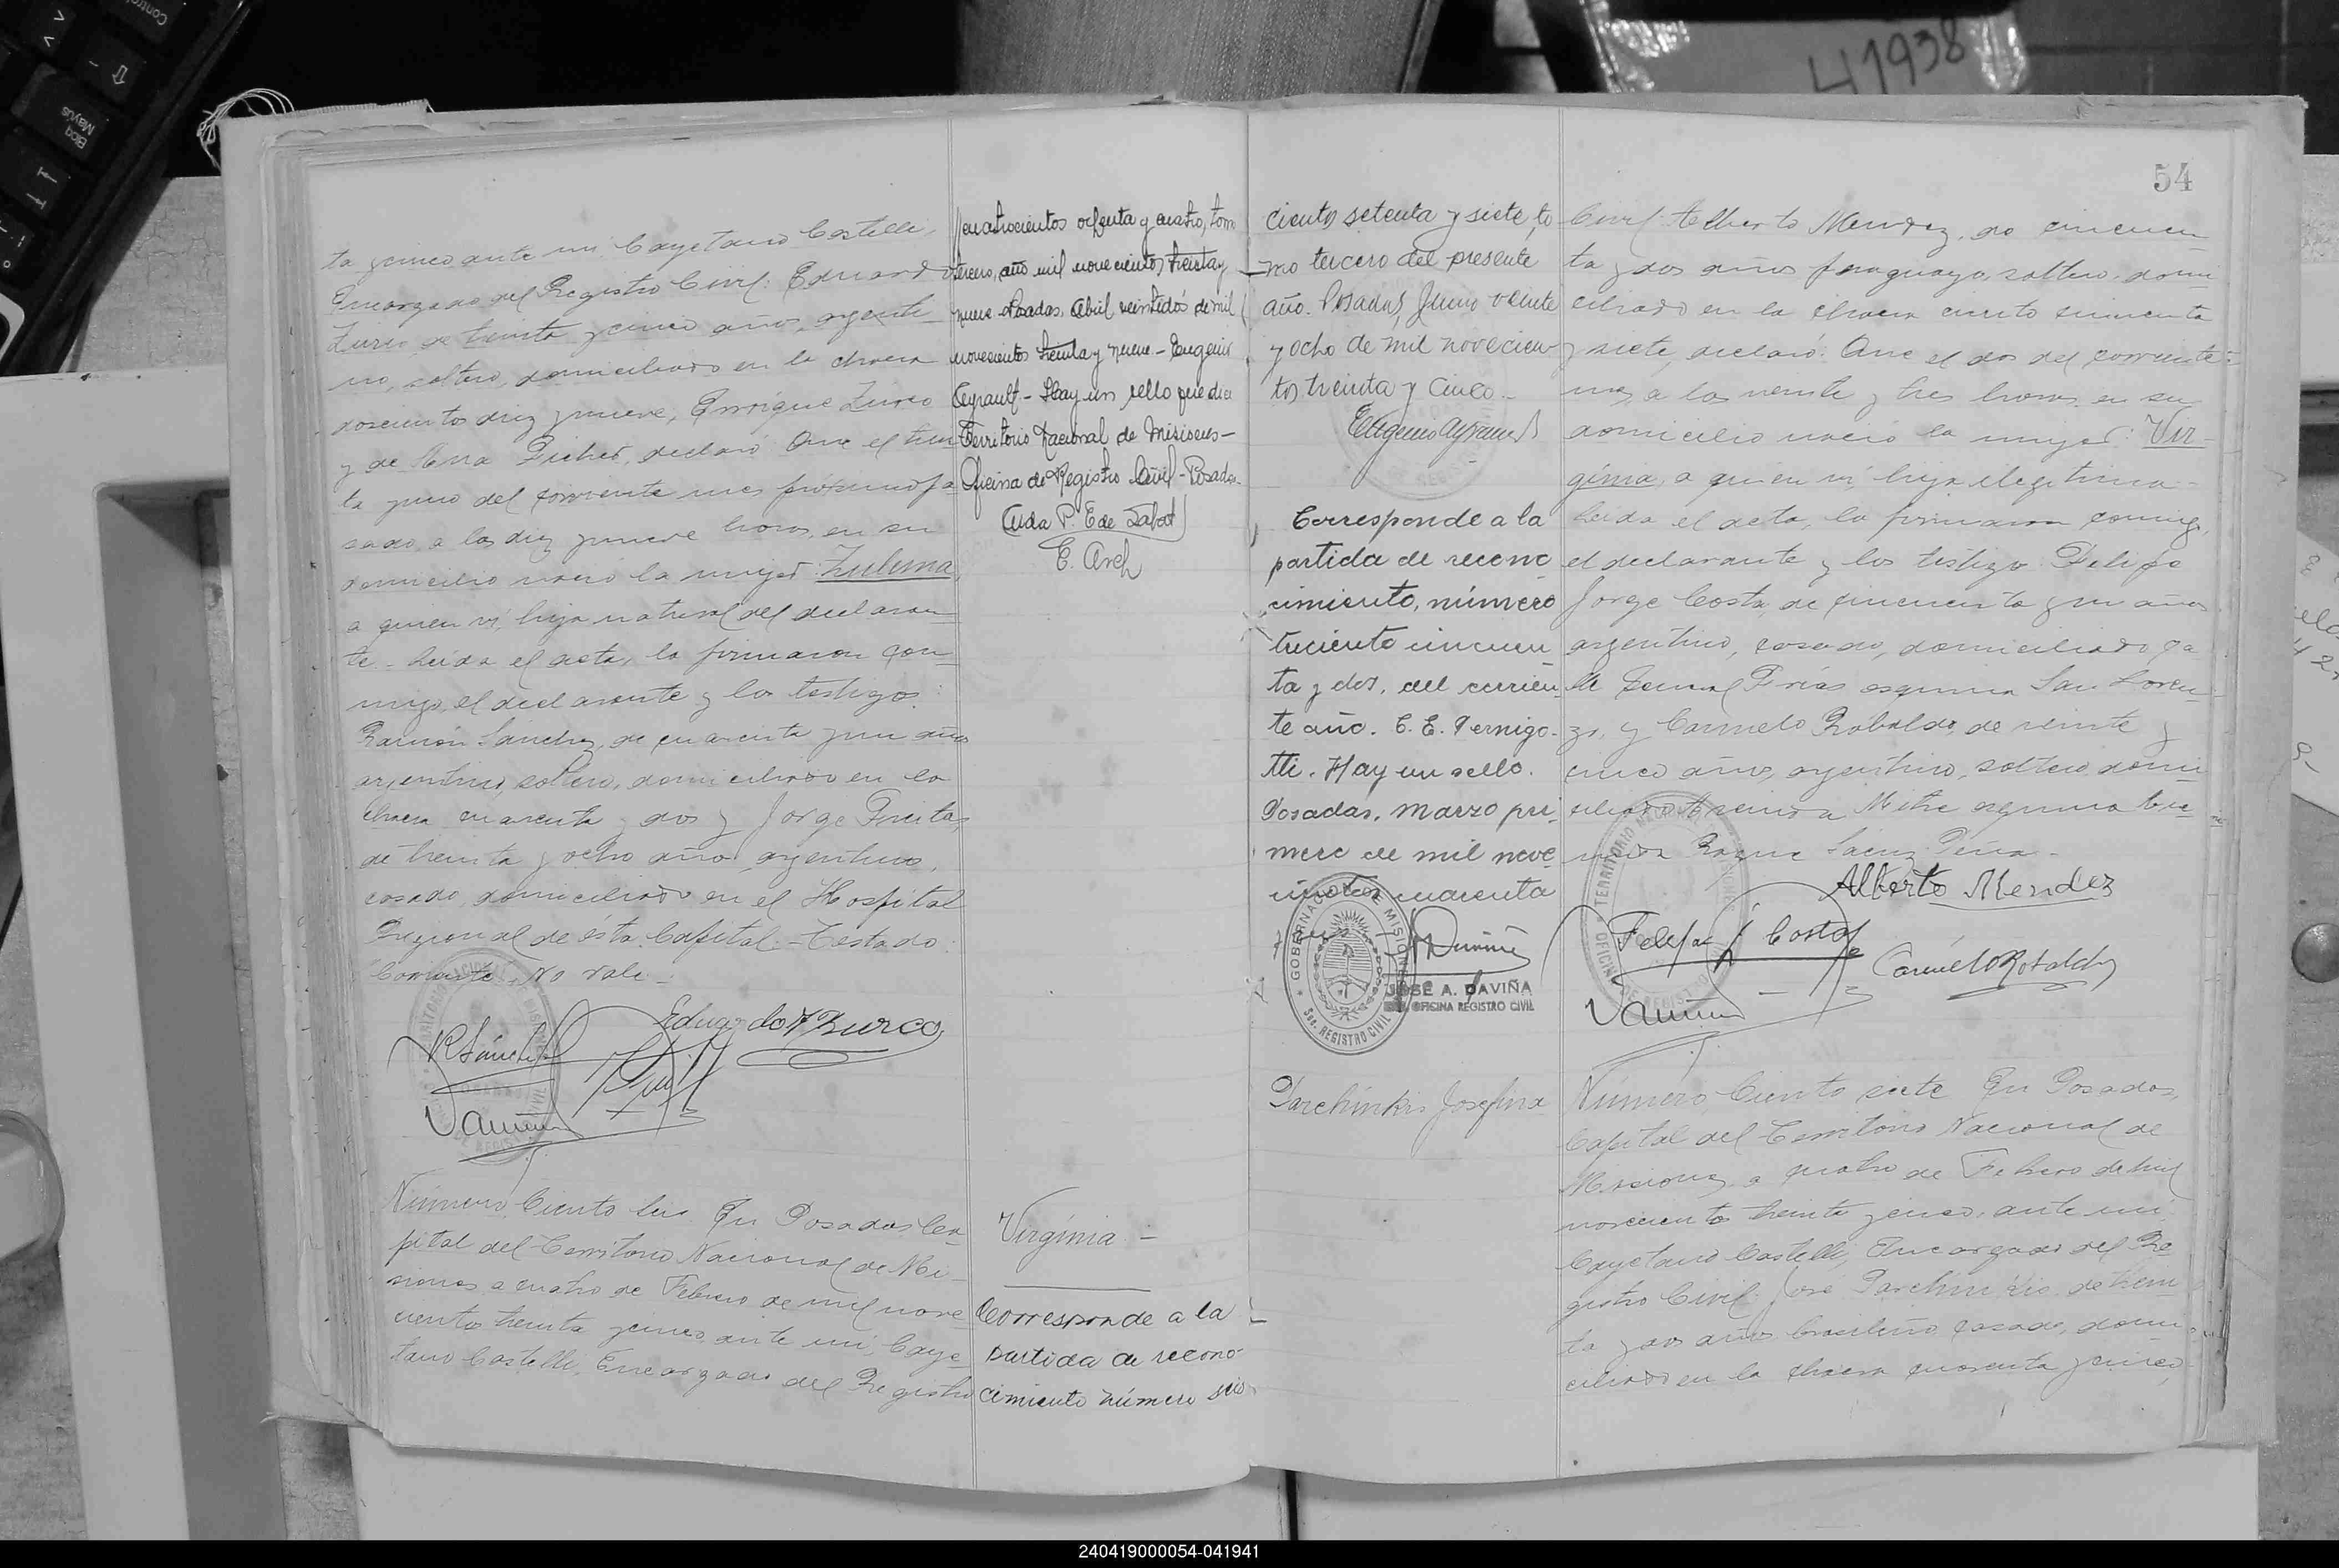 41938
54
ta y cinco ante mi Cayetano Castelli,
Encargado del Registro Civil: Eduardo
Zurco de treinta y cinco años, argenti
no, soltero, domiciliado en la chacra
doscientos diez y nueve, Enrique Zurco
y de Ana, declaró: Que el trein
ta y uno del corriente mes próximo pa
sado, a las diez y nueve horas, en su
domicilio nació la mujer: Zulema,
a quien vi, hija natural del declaran
te. Leida el acta, la firmaron con
migo, el declarante y los testigos:
Ramón Sánchez, de cuarenta y un años
argentino, soltero, domiciliado en la
chacra cuarenta y dos y Jorge Freitas,
de treinta y ocho años, argentino,
casado, domiciliado en el Hospital
Regional de ésta Capital.- Testado:
Corriente. No vale.-
Eduardo Zurco
R Sánchez
Número Ciento seis En Posadas, Ca
pital del Territorio Nacional de Mi
siones a cuatro de Febrero de mil nove
cientos treinta y cinco, ante mi, Caye
tano Castelli, Encargado del Registro
cuatrocientos ochenta y cuatro, tomo
tercero, año mil novecientos treinta y
nueve. Posadas, Abril veintidós de mil
novecientos treinta y nueve.- Eugenio
Hay un sello que dice
Territorio Nacional de Misiones-
Oficina de Registro Civil - Posadas.
E. Arch
Virginia -
Corresponde a la
partida de recono-
cimiento número seis
cientos setenta y siete, to
mo tercero del presente
año. Posadas, Junio veinte
y ocho de mil novecien
tos treinta y cinco.-
Corresponde a la
partida de recono
cimiento, número
treciento cincuen
ta y dos, del corrien
te año. C. E. Pernigo-
tti. Hay un sello.
Posadas, marzo pri
mero de mil nove
cientos cuarenta
GOBERNACION DE MISIONES
REGISTRO CIVIL
JOSE A. DAVIÑA
OFICINA REGISTRO CIVIL
Parchinkis Josefina
Civil: Alberto Mendez, de cincuen
ta y dos años, paraguayo, soltero, domi
ciliado en la chacra ciento cincuenta
y siete, declaró: Que el dos del corriente
mes, a las veinte y tres horas en su
domicilio nació la mujer: Vir-
ginia, a quien vi, hija ilegitima.-
Leida el acta, la firmaron conmigo,
el declarante y los testigos: Felipe
Jorge Costa, de cincuenta y un años
argentino, casado, domiciliado ca
lle General Frías esquina San Loren
zo, y Carmelo Robaldo, de veinte y
cinco años, argentino, soltero, domi
ciliado Avenida Mitre esquina Ave
nida Roque Saenz Peña.-
Alberto Mendez
Felipe J Costa
Carmelo Robaldo
Número Ciento siete En Posadas,
Capital del Territorio Nacional de
Misiones, a cuatro de Febrero de mil
novecientos treinta y cinco, ante mi
Cayetano Castelli, Encargado del Re
gistro Civil: José Parchinkis, de trein
ta y dos años, brasileño, casado, domi
ciliado en la chacra cuarenta y cinco,
240419000054-041941